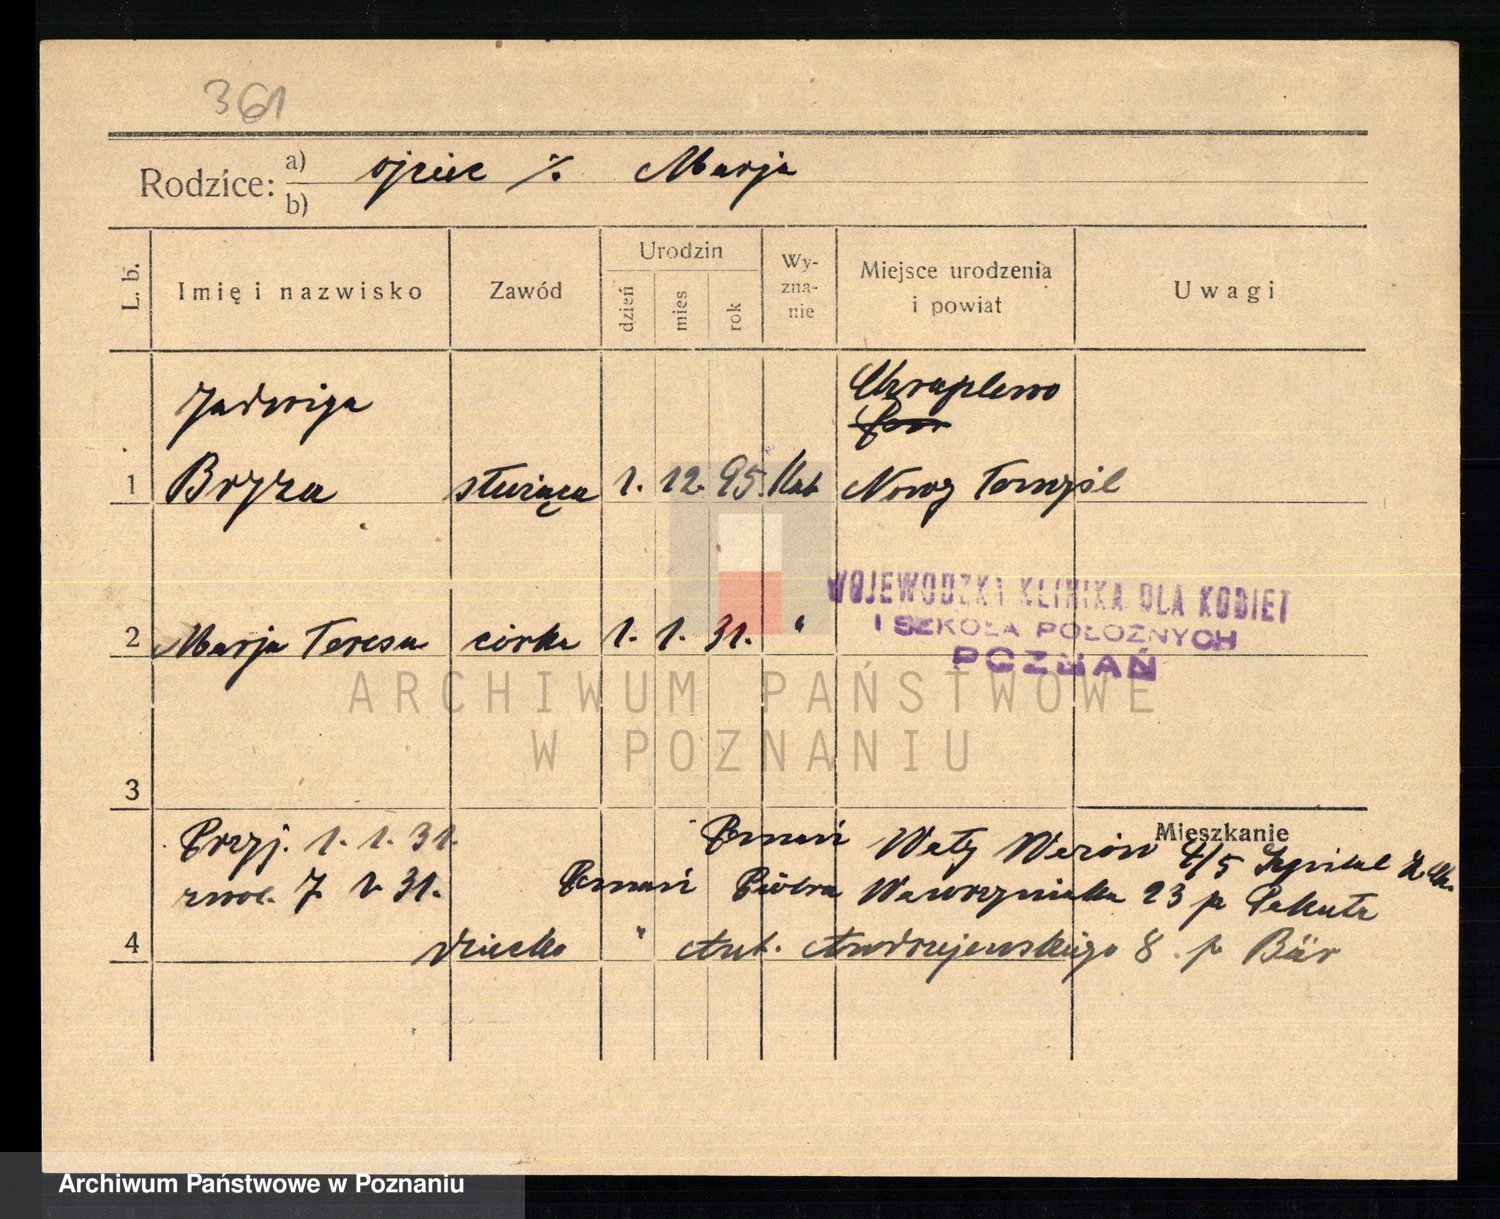 361
Rodzice: a) ojciec ./. Marja
b)
L. b.
Imię i nazwisko
Zawód
Urodzin
dzień
mies
rok
Wy-
zna-
nie
Miejsce urodzenia
i powiat
Uwagi
Jadwiga
Chraplewo
1 Bryza służąca 1. 12. 95. Kat Nowy Tomyśl
WOJEWODZKA KLINIKA DLA KOBIET
I SZKOŁA POŁOŻNYCH
POZNAŃ
2 Marja Teresa córka 1. 1. 31. "
ARCHIWUM PAŃSTWOWE
W POZNANIU
3
Mieszkanie
Przyj. 1. 1. 31. Poznań Wały Wazów 4/5 Szpital
zwol. 7. 1. 31. Poznań Piotra Wawrzyniaka 23 p
4 dziecko " Ant. Andrzejewskiego 8 p Bär
Archiwum Państwowe w Poznaniu